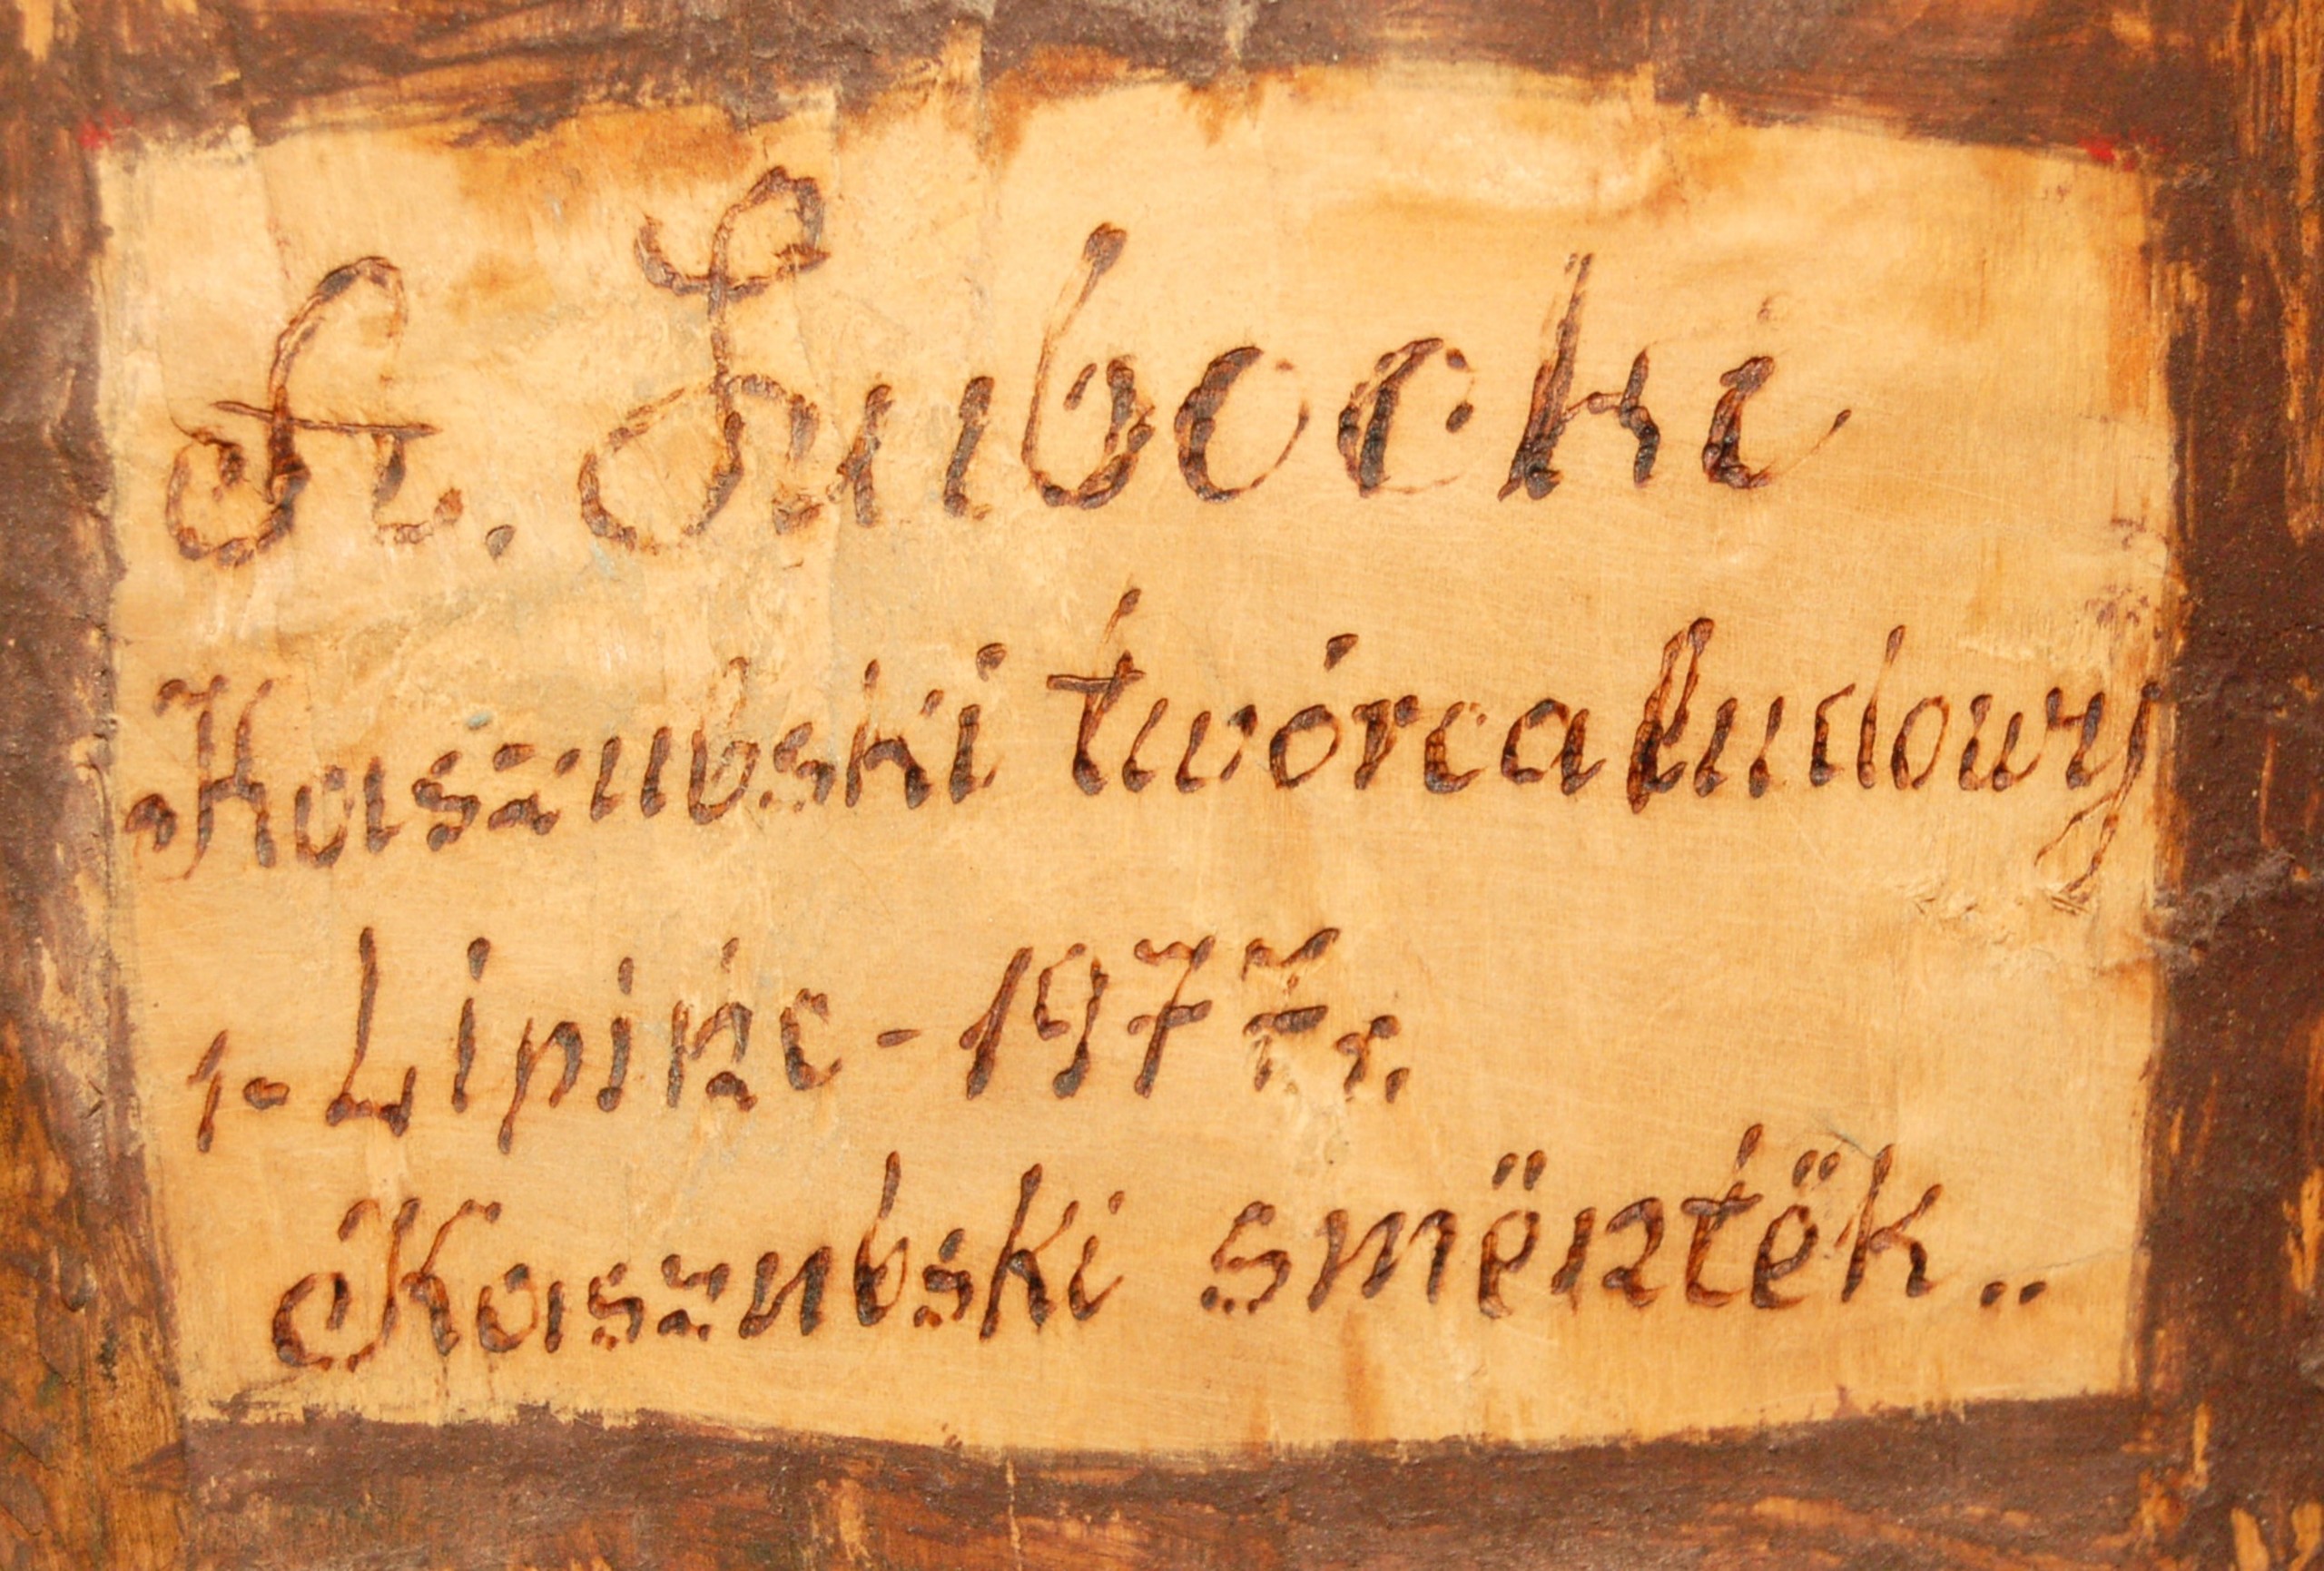 A. Lubocki
Kaszubski twórca ludowy
1. Lipińc - 1977 r.
Kaszubski smëntëk..